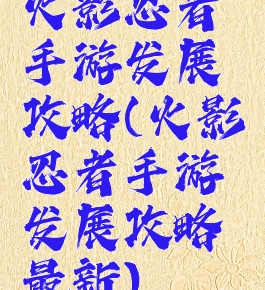 火影忍者
手游发展
攻略(火影
忍者手游
发展攻略
最新)